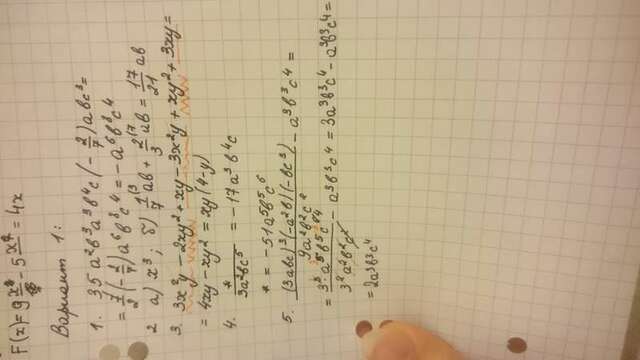 F(x)= 9 x⁸/x⁶ - 5 x⁹/ = 4x
Вариант 1:
1. 35 a²b³a³b⁴c (- 2/7) abc³=
= 7/2 (- 2/7) a⁶b⁸c⁴ = -a⁶b⁸c⁴
2 а) x³; б) 1/7 ab + 2/3 ab = 17/21 ab
3. 3x²y - 2xy² + xy - 3x²y + xy² + 3xy =
= 4xy - xy² = xy(4-y)
4. */3a²bc⁵ = -17a³b⁴c
* = -51a⁵b⁵c⁶
5. (3abc)³(-a²b)(-bc³)/9a²b²c² - a³b³c⁴ =
= 3³ a⁵b⁵c⁴/3²a²b²c² - a³b³c⁴ = 3a³b³c⁴ - a³b³c⁴ =
= 2a³b³c⁴